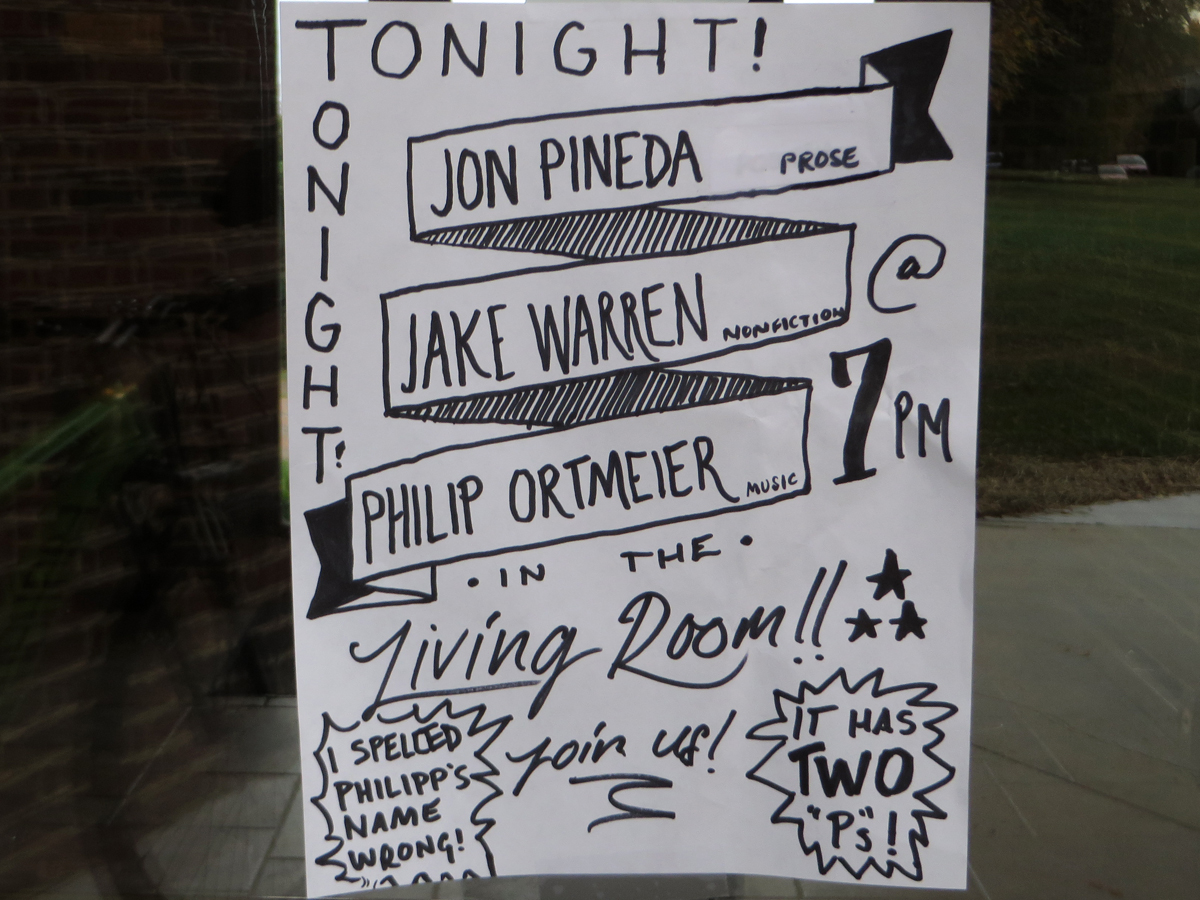 TONIGHT!
TONIGHT!
JON PINEDA PROSE
JAKE WARREN NONFICTION
@
7PM
PHILIP ORTMEIER MUSIC
• IN THE •
Living Room!!
Join us!
I SPELLED
PHILIPP'S
NAME
WRONG!
IT HAS
TWO
"P's"!